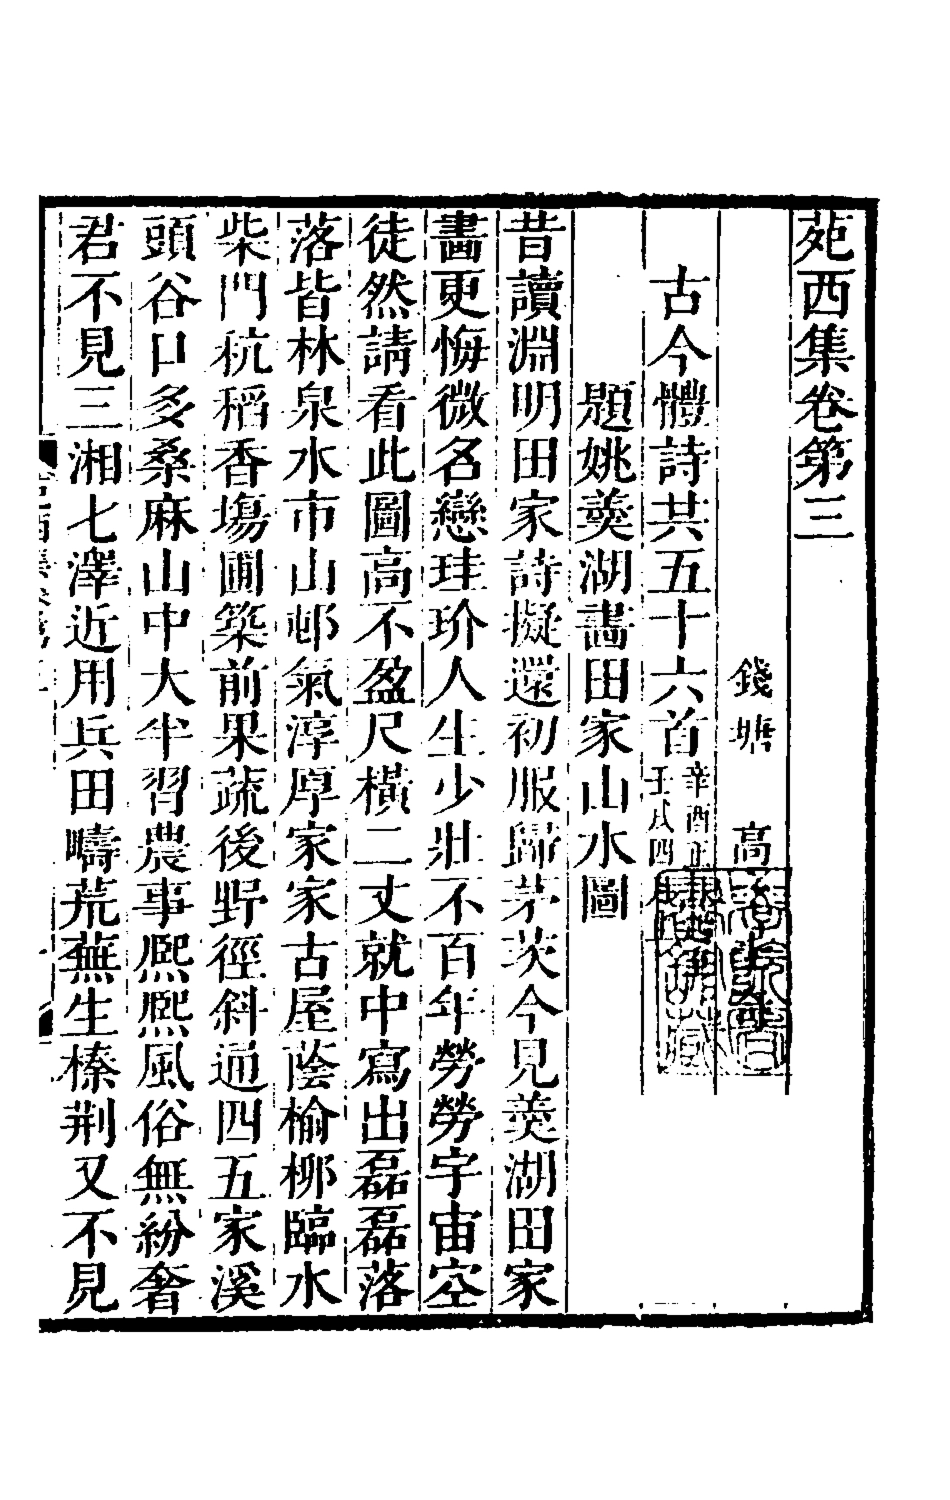 苑西集卷第三
錢塘　高
古今體詩共五十六首辛酉正
壬戌四
題姚羮湖畵田家山水圖
昔讀淵明田家詩擬還初服歸茅茨今見羮湖田家
畵更悔微名戀珪玠人生少壯不百年勞勞宇宙空
徒然請看此圖高不盈尺橫二丈就中寫出磊磊落
落皆林泉水市山邨氣淳厚家家古屋蔭榆柳臨水
柴門秔稻香塲圃築前果蔬後野徑斜通四五家溪
頭谷口多桑麻山中大半習農事熈熈風俗無紛奢
君不見三湘七澤近用兵田疇荒蕪生榛荆又不見